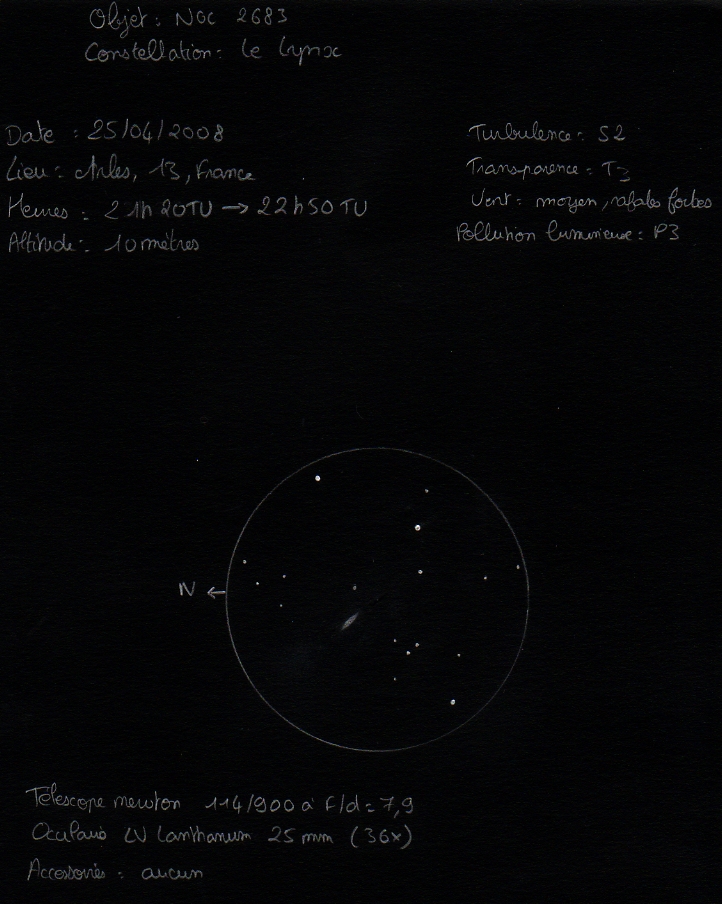 Objet : NGC 2683
Constellation : Le Lynx
Date : 25/04/2008
Lieu : Arles, 13, France
Heures : 21h20TU → 22h50TU
Altitude : 10 mètres
Turbulence : S2
Transparence : T3
Vent : moyen, rafales fortes
Pollution lumineuse : P3
N ←
Télescope newton 114/900 à F/d = 7,9
Oculaire LV Lanthanum 25 mm (36x)
Accessoires : aucun